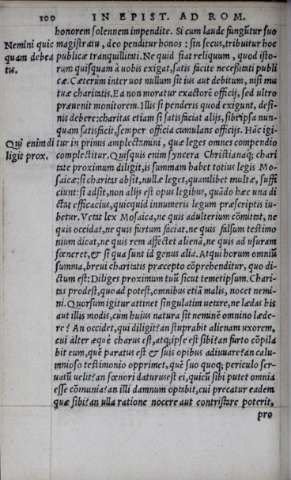 100 IN EPIST. AD ROM.
honorem solennem impendite. Si cum laude fungūtur suo
Nemini quic magistratu, deo penditur honos: sin secus, tribuitur hoc
quam debea publicæ tranquillitati. Ne quid fiat reliquum, quod isto-
tis. rum quisquam à vobis exigat, satis facite necessitati publi
cæ. Cæterùm inter vos nullum sit ius aut debitum, nisi mu
tuæ charitatis. Ea non moratur exactorē officij, sed ultro
prævenit monitorem. Illis si penderis quod exigunt, desi-
nis debere: charitas etiam si satisfaciat alijs, sibiipsa nun-
quam satisfacit, semper officia cumulans officijs. Hâc igi-
Qui enim di tur in primis amplectamini, quæ leges omnes compendio
ligit prox. complectitur. Quisquis enim syncera Christianaq; chari
tate proximum diligit, is summam habet totius legis Mo-
saicæ: si charitas absit, nullæ leges, quamlibet multæ, suffi
ciunt: si adsit, non alijs est opus legibus, quādo hæc una di
ctat efficacius, quicquid innumeris legum præscriptis iu-
betur. Vetat lex Mosaica, ne quis adulterium cōmitat, ne
quis occidat, ne quis furtum faciat, ne quis falsum testimo
nium dicat, ne quis rem affectet alienā, ne quis ad usuram
fœneret, & si qua sunt id genus alia. Atqui horum omniū
summa, brevi charitatis præcepto cōprehenditur, quo di-
ctum est: Diliges proximum tuū sicut temetipsum. Chari-
tas prodest, quo ad potest, omnibus etiā malis, nocet nemi
ni. Quorsum igitur attinet singulatim vetare, ne lædas his
aut illis modis, cum huius natura sit neminē omnino læde-
re? An occidet, qui diligit? an stuprabit alienam uxorem,
cui alter æquè charus est, atq; ipse est sibi? an furto cōpila
bit eum, quē paratus est & suis opibus adiuvare? an calu-
mnioso testimonio opprimet, quē suo quoq; periculo ser-
vatū velit? an fœnori daturus est ei, quicū sibi putet omnia
esse cōmunia? an illi damnum optabit, cui precatur eadem
quæ sibi? an ulla ratione nocere aut contristare poterit,
pro